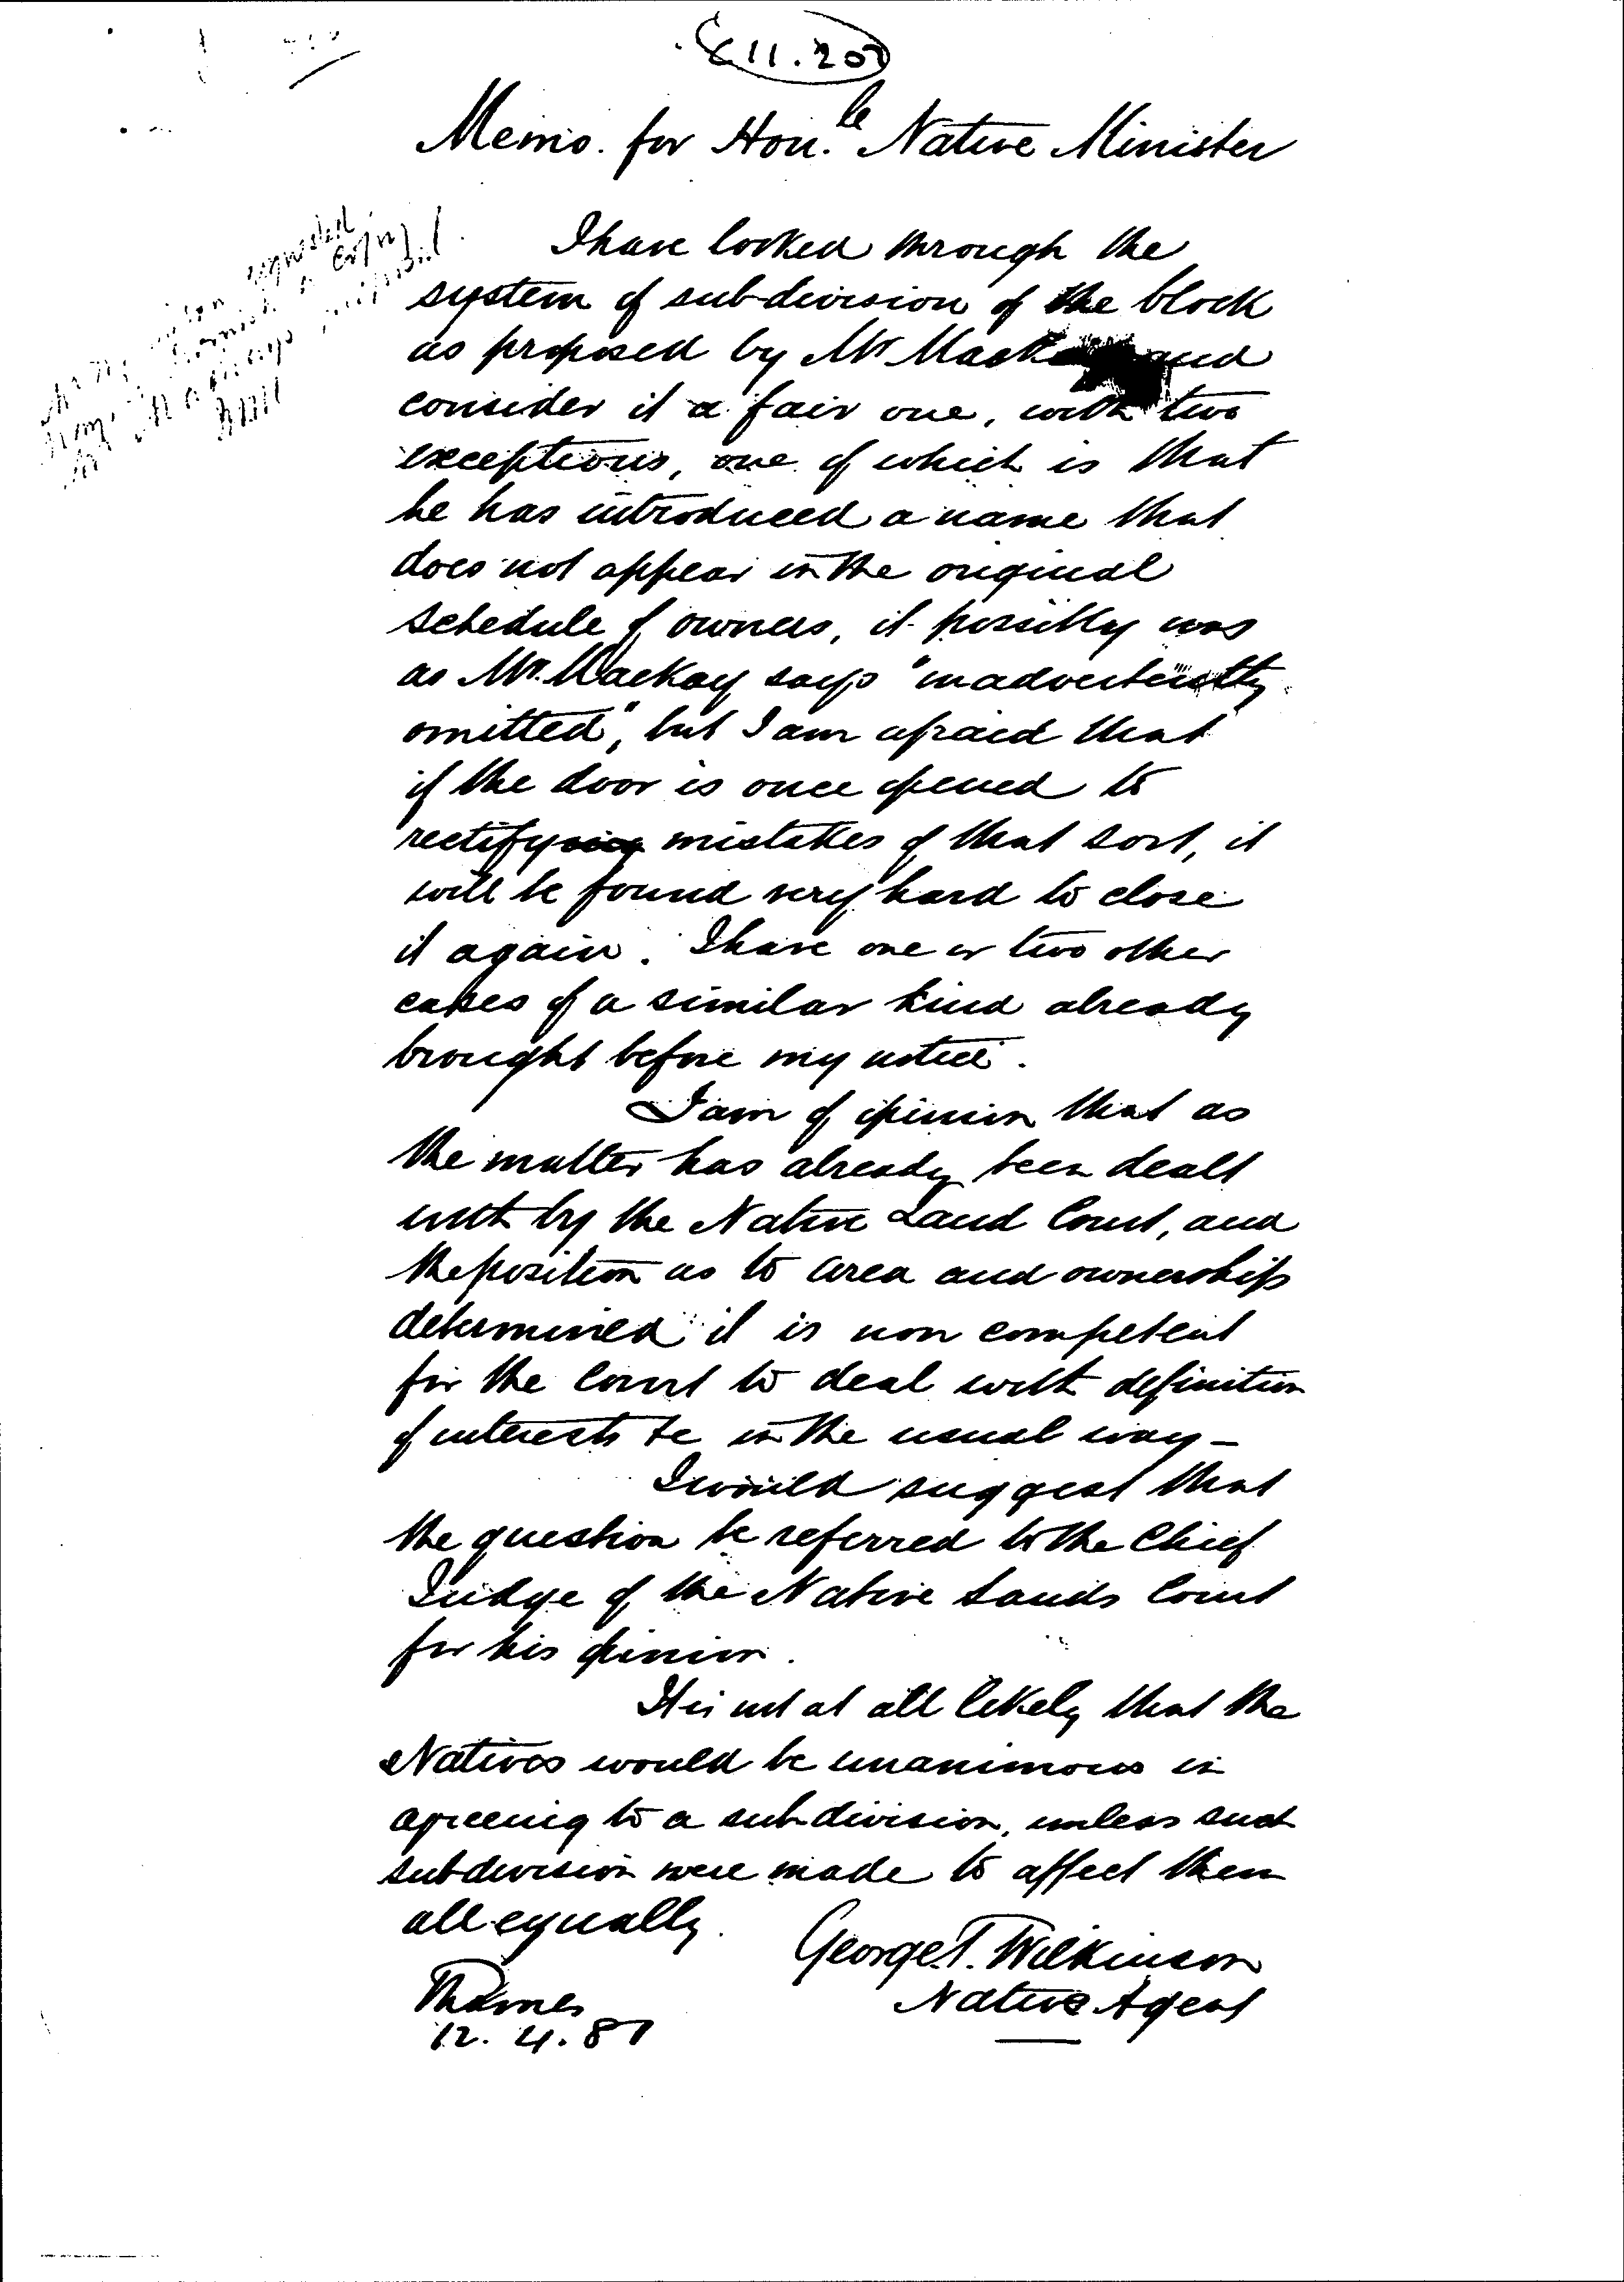 E11.20
Memo. for Hon.le Native Minister
requested
copy
I have looked through the
system of sub-division of the block
as proposed by Mr Mackay and
consider it a fair one, with two
exceptions, one of which is that
he has introduced a name that
does not appear in the original
schedule of owners, it possibly was
as Mr. Mackay says "inadvertently
omitted", but I am afraid that
if the door is once opened to
rectify mistakes of that sort, it
will be found very hard to close
it again. I have one or two other
cases of a similar kind already
brought before my notice.
I am of opinion that as
the matter has already been dealt
with by the Native Land Court, and
the position as to area and ownership
determined it is non competent
for the Court to deal with definition
of interests &c in the usual way —
I would suggest that
the question be referred to the Chief
Judge of the Native Lands Court
for his opinion.
It is not at all likely that the
Natives would be unanimous in
agreeing to a sub-division, unless such
subdivision were made to affect them
all equally.
George T. Wilkinson
Native Agent
Thames
12. 4. 87